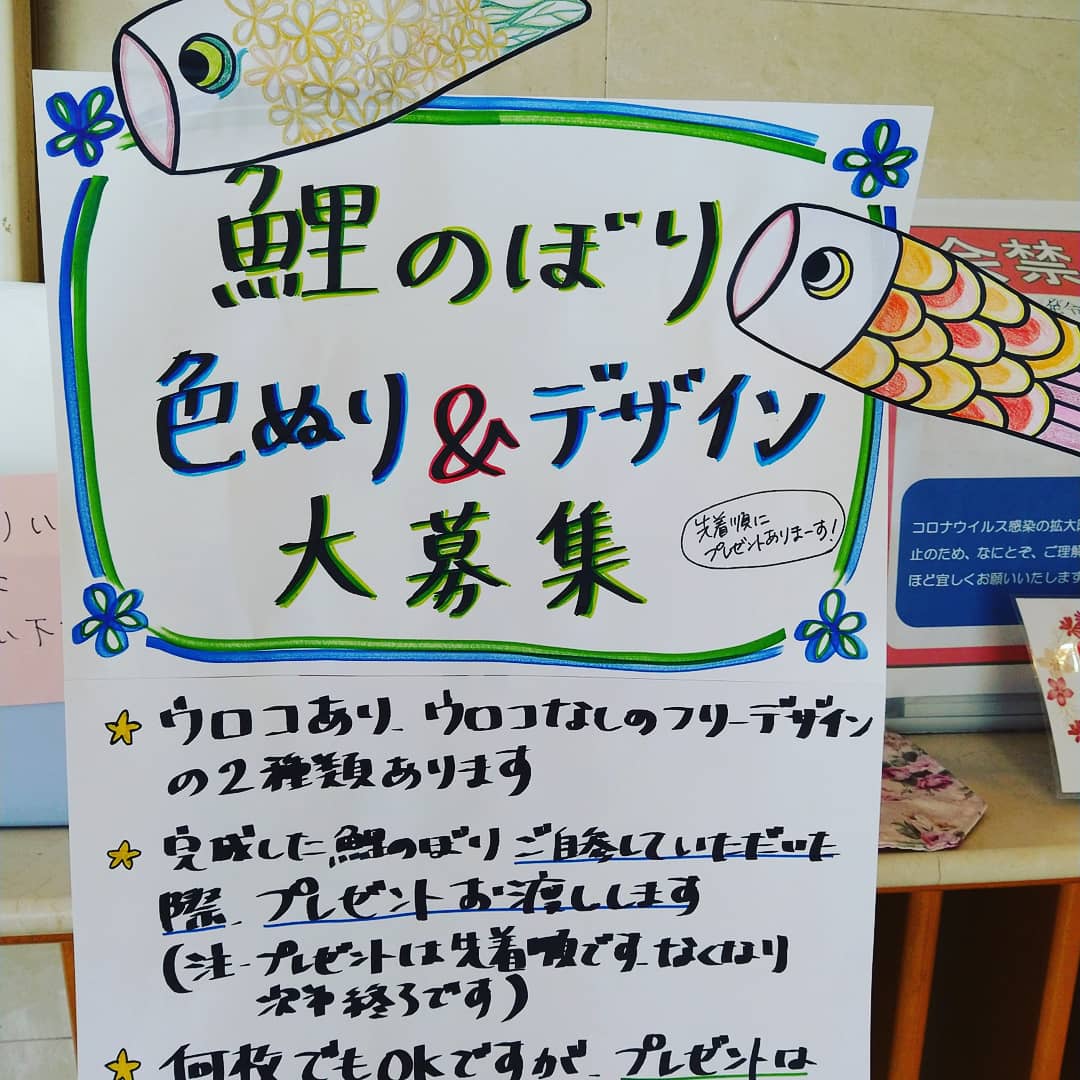 鯉のぼり
色ぬり&デザイン
大募集
先着順に
プレゼントありまーす!
ウロコあり、ウロコなしのフリーデザイン
の2種類あります
完成した鯉のぼりご自参していただいた
際、プレゼントお渡しします
(注、プレゼントは先着順です、なくなり
次第終了です)
何枚でもOKですが、プレゼントは
禁
コロナウイルス感染の拡大
止のため、なにとぞ、ご理解
ほど宜しくお願いいたします
りい
下